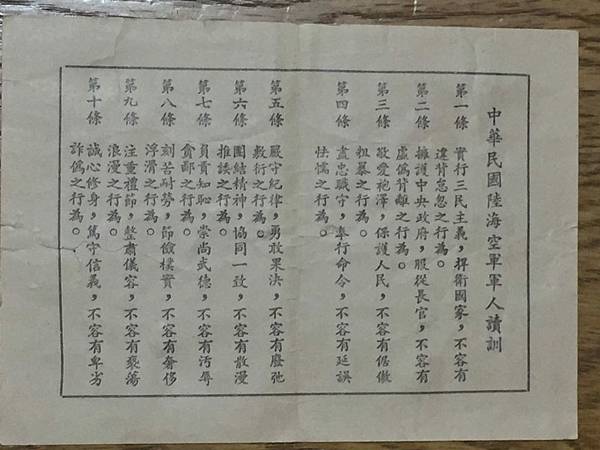 中華民國陸海空軍軍人讀訓
第一條 實行三民主義，捍衛國家，不容有
違背怠忽之行為。
第二條 擁護中央政府，服從長官，不容有
虛偽背離之行為。
第三條 敬愛袍澤，保護人民，不容有倨傲
粗暴之行為。
第四條 盡忠職守，奉行命令，不容有延誤
怯懦之行為。
第五條 嚴守紀律，勇敢果決，不容有廢弛
敷衍之行為。
第六條 團結精神，協同一致，不容有散漫
推諉之行為。
第七條 負責知恥，崇尚武德，不容有污辱
貪鄙之行為。
第八條 刻苦耐勞，節儉樸實，不容有奢侈
浮滑之行為。
第九條 注重禮節，整肅儀容，不容有褻蕩
浪漫之行為。
第十條 誠心修身，篤守信義，不容有卑劣
詐偽之行為。